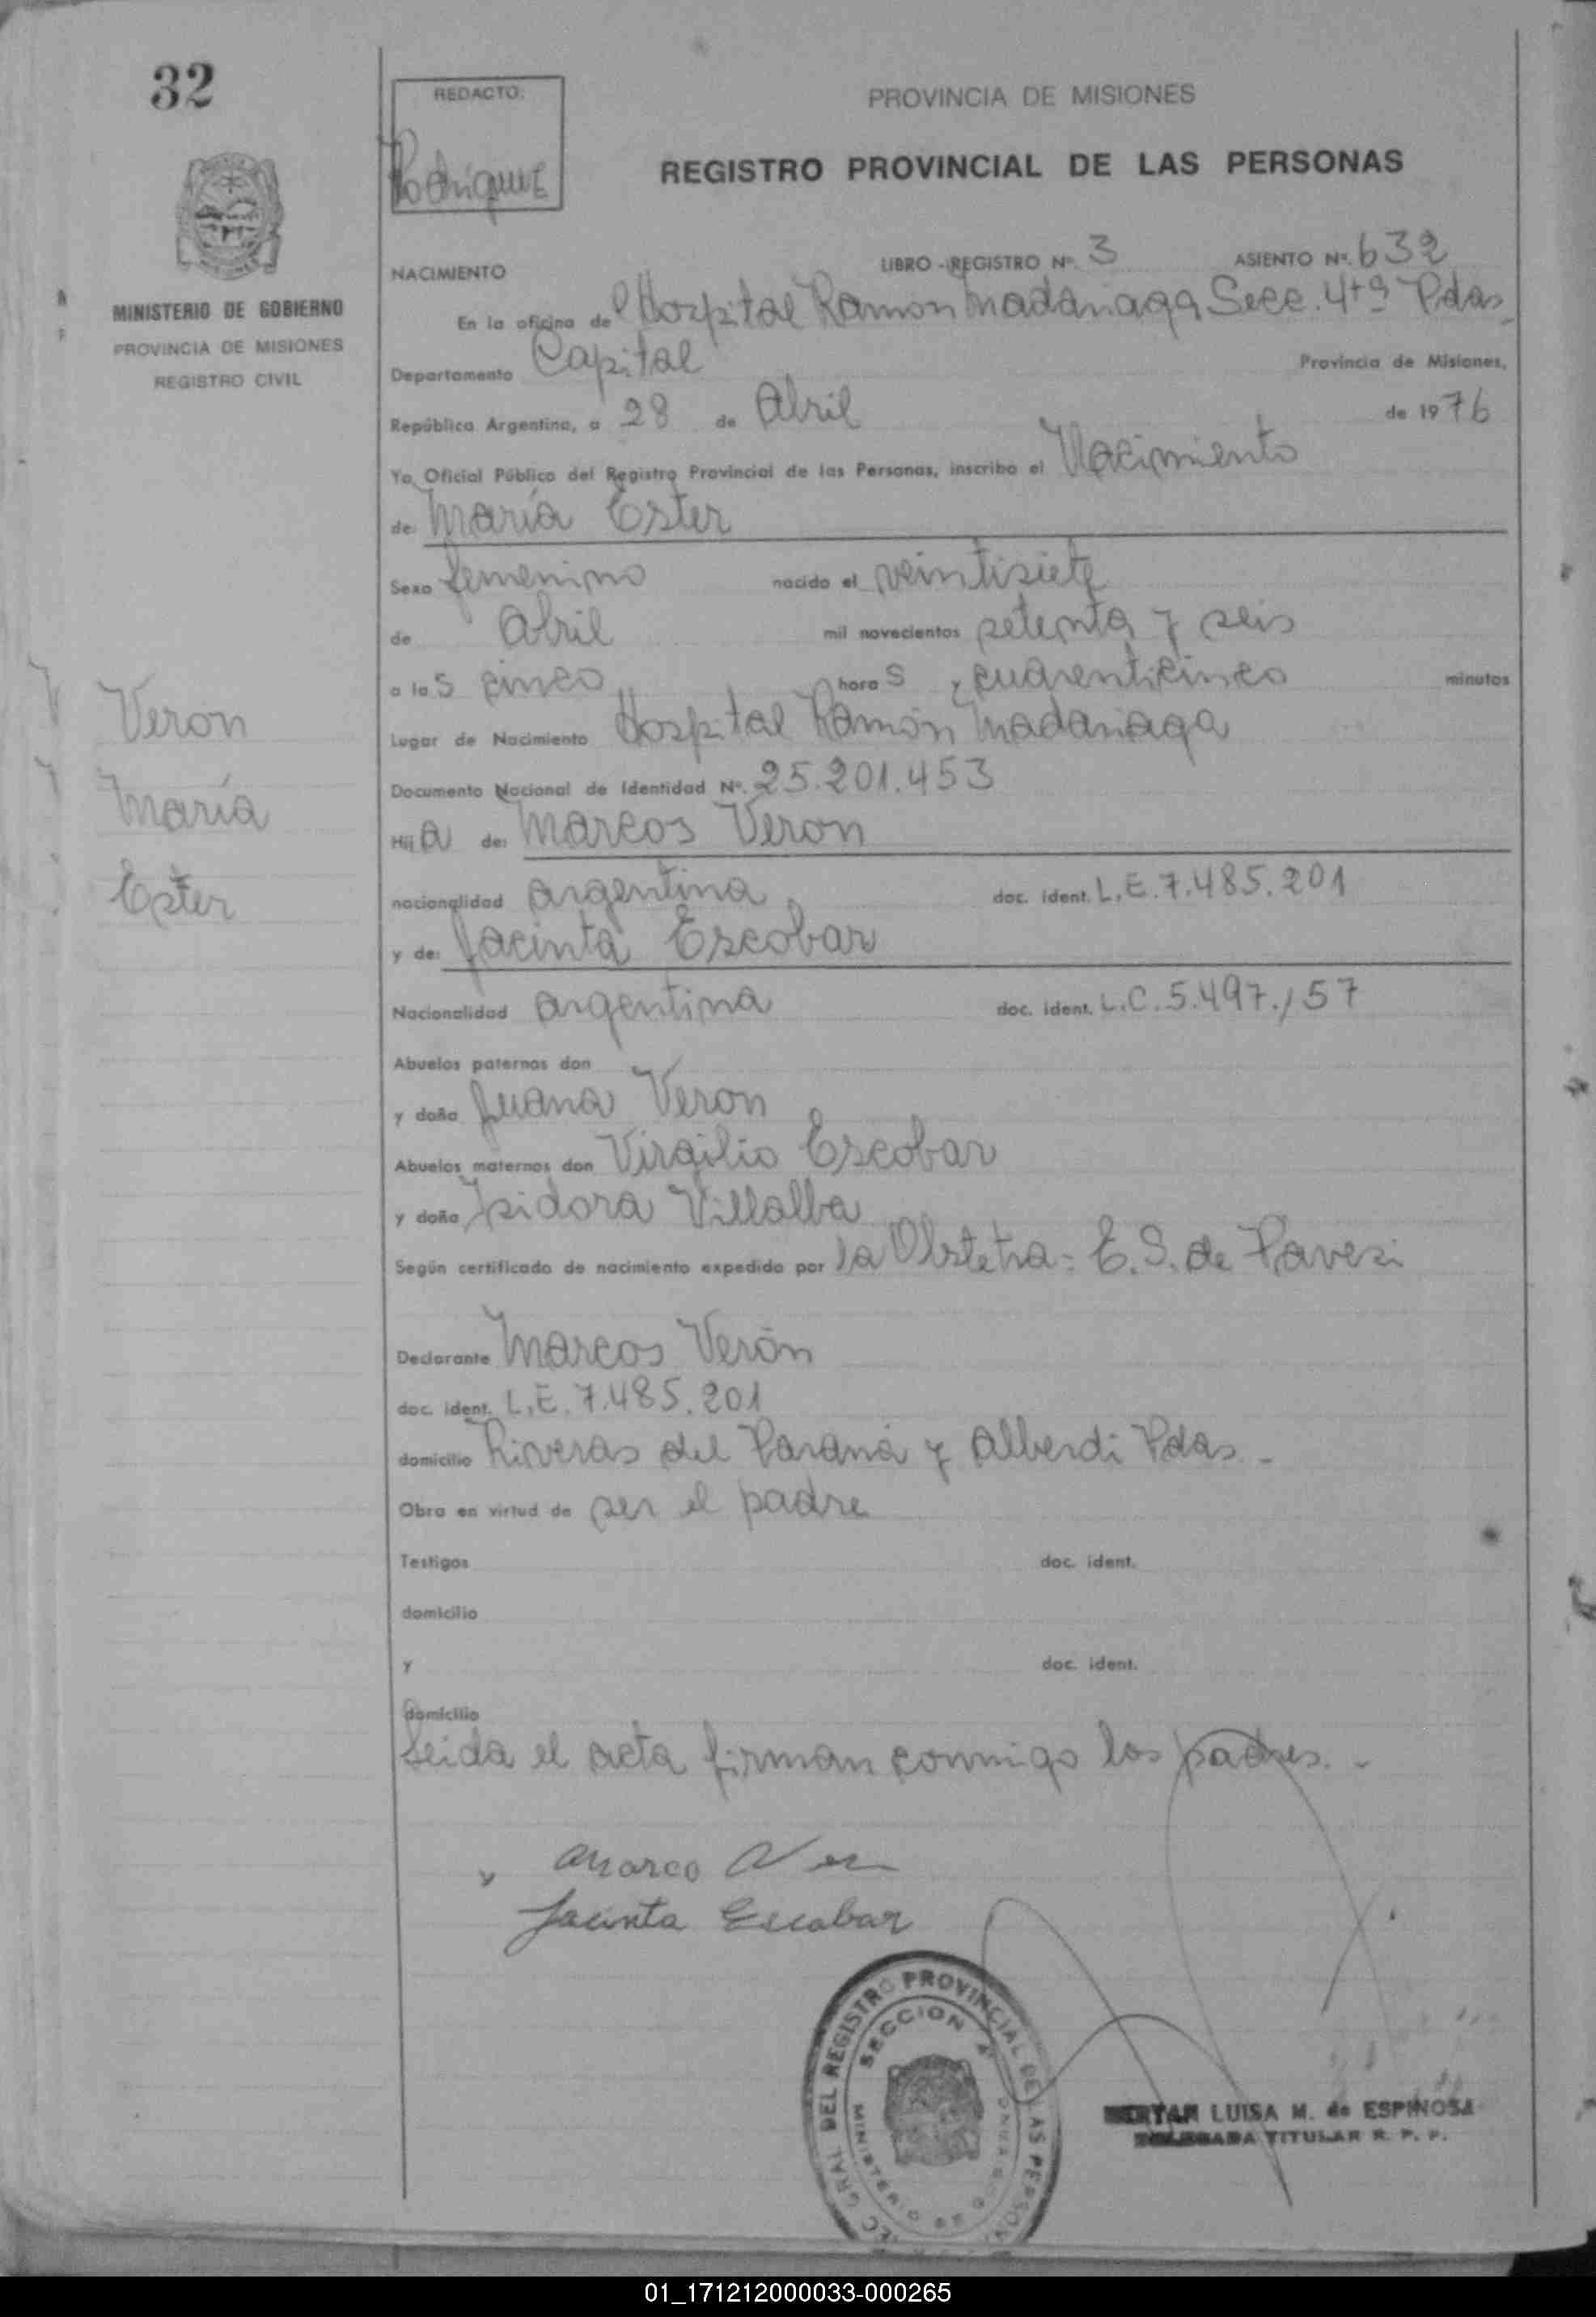 32
REDACTO:
Rodriguez
PROVINCIA DE MISIONES
REGISTRO PROVINCIAL DE LAS PERSONAS
MINISTERIO DE GOBIERNO
PROVINCIA DE MISIONES
REGISTRO CIVIL
NACIMIENTO LIBRO - REGISTRO Nº. 3 ASIENTO Nº. 632
En la oficina de Hospital Ramón Madariaga Secc. 4ta Pdas
Departamento Capital Provincia de Misiones,
República Argentina, a 28 de Abril de 1976
Yo, Oficial Público del Registro Provincial de las Personas, inscribo el Nacimiento
de María Ester
Sexo femenino nacido el veintisiete
de abril mil novecientos setenta y seis
a las cinco horas y cuarenticinco minutos
Lugar de Nacimiento Hospital Ramón Madariaga
Documento Nacional de Identidad Nº. 25.201.453
Hija de: Marcos Veron
nacionalidad argentina doc. ident. L.E. 7.485.201
y de: Jacinta Escobar
Nacionalidad argentina doc. ident. L.C. 5.497.157
Abuelos paternos don
y doña Juana Veron
Abuelos maternos don Virgilio Escobar
y doña Isidora Villalba
Según certificado de nacimiento expedido por la Obstetra: E.S. de Pavesi
Declarante Marcos Verón
doc. ident. L.E. 7.485.201
domicilio Riveras del Paraná y Alberdi Pdas.-
Obra en virtud de ser el padre
Testigos doc. ident.
domicilio
y doc. ident.
domicilio
Leida el acta firman conmigo los padres.-
Veron
María
Ester
Marco Ver
Jacinta Escobar
GRAL DEL REGISTRO PROVINCIAL DE LAS PERSON
SECCION 4ª
MINISTERIO DE
LUISA M. de ESPINOSA
TITULAR R. P. P.
01_171212000033-000265